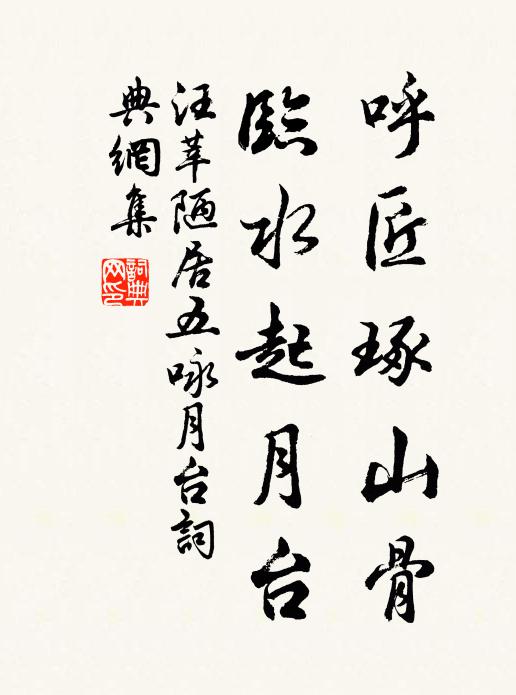 呼匠琢山骨
臨水起月台
汪莘陋居五咏月台詞
典網集
詞典
网印